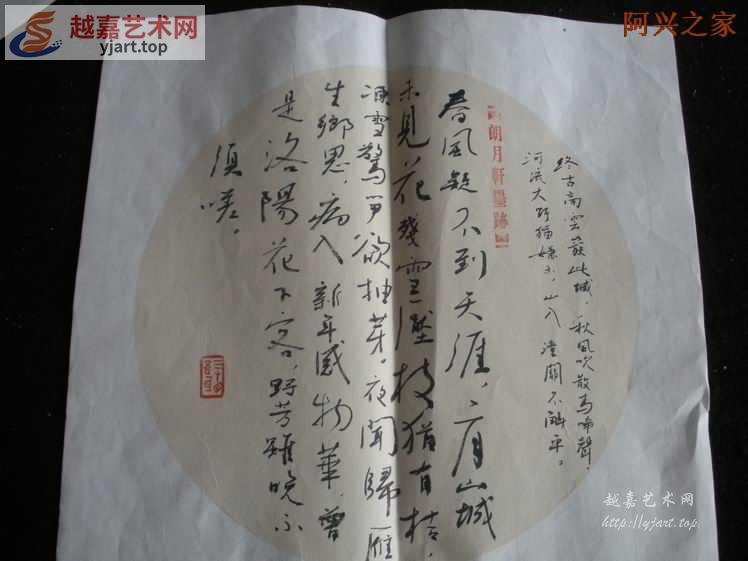 越嘉艺术网
yjart.top
阿兴之家
终古高云蔟此城，秋风吹散马啼聲，
河流大野猶嫌束，山入潼關不解平。
朗月軒墨跡
春風疑不到天涯，二月山城
未見花殘雪壓枝猶有桔，
凍雷驚笋欲抽芽。夜聞歸雁
生鄉思，病入新年感物華，曾
是洛陽花下客，野芳雖晚不
須嗟。
越嘉艺术网
http://yjart.top